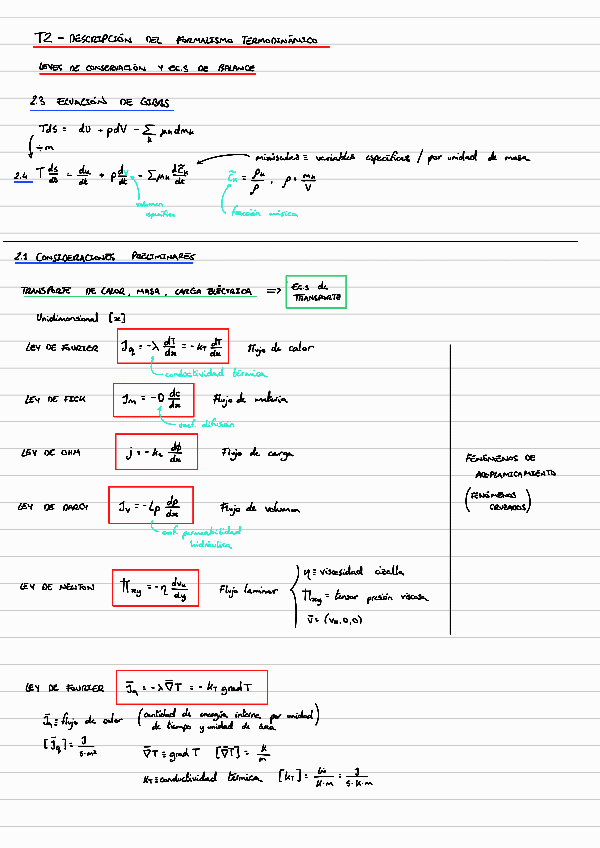 T2 - DESCRIPCIÓN DEL FORMALISMO TERMODINÁMICO
LEYES DE CONSERVACIÓN Y EC.S DE BALANCE
2.3 ECUACIÓN DE GIBBS
Tds = dU + pdV - ∑_k μ_k dm_k
÷m
minúsculas ≡ variables específicas / por unidad de masa
2.4 T ds/dt = du/dt + p dv/dt - ∑ μ_k dc̃_k/dt
c̃_k = ρ_k/ρ , ρ = m_k/V
volumen específico
fracción másica
2.1 CONSIDERACIONES PRELIMINARES
TRANSPORTE DE CALOR, MASA, CARGA ELÉCTRICA => EC.S de TRANSPORTE
Unidimensional [x]
LEY DE FOURIER J_q = -λ dT/dx = -k_T dT/dx Flujo de calor
conductividad térmica
LEY DE FICK J_m = -D dc/dx Flujo de materia
coef. difusión
LEY DE OHM j = -k_e dϕ/dx Flujo de carga
FENÓMENOS DE
ACOPLAMIENTO
(FENÓMENOS CRUZADOS)
LEY DE DARCY J_v = -L_p dp/dx Flujo de volumen
coef. permeabilidad
hidráulica
LEY DE NEWTON Π_xy = -η dv_x/dy Flujo laminar
η ≡ viscosidad cizalla
Π_xy = tensor presión viscosa
v̄ = (v_x, 0, 0)
LEY DE FOURIER J̄_q = -λ ∇̄T = -k_T grad T
J̄_q ≡ flujo de calor (cantidad de energía interna por unidad de tiempo y unidad de área)
[J̄_q] = J/s·m²
∇̄T ≡ grad T [∇̄T] = K/m
k_T ≡ conductividad térmica [k_T] = W/K·m = J/s·K·m